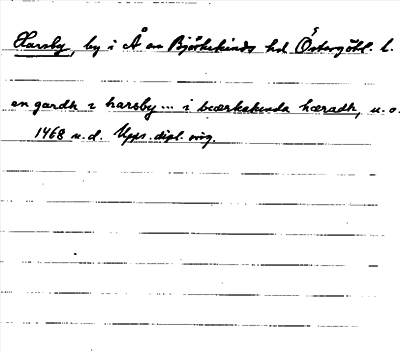 Harsby, by i Å sn Björkekinds hd Östergötl. l.
en gardh i harsby... i biærkakinda hæradh, u.o.
1468 u.d. Upps. dipl. orig.